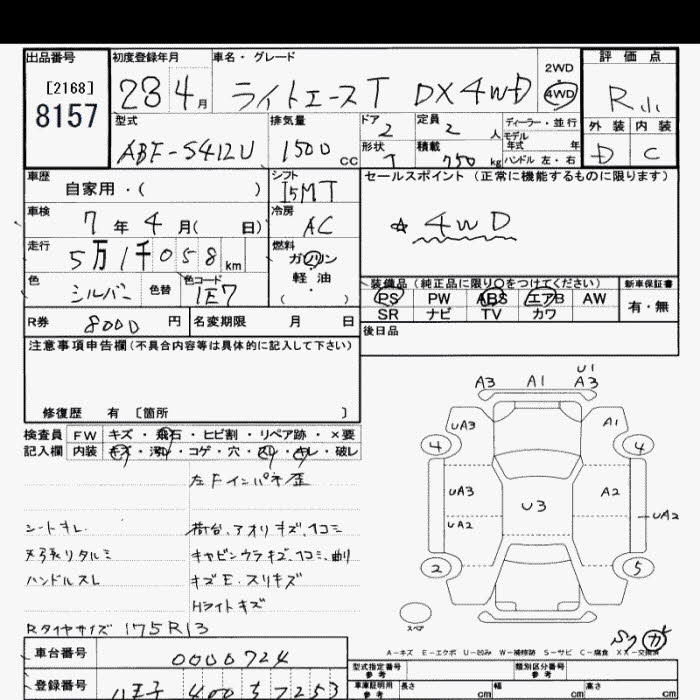 出品番号 初度登録年月 車名・グレード 2WD ・ 4WD 評価点
[2168]
8157
23 4月 ライトエースT DX 4WD R小
型式 排気量 ドア 2 定員 2人 ディーラー・並行 外装 内装
モデル年式 年
ABF-S412U 1500cc 形状 T 積載 750kg ハンドル 左・右 D C
車歴 自家用・( ) シフト I5MT セールスポイント (正常に機能するものに限ります)
車検 7年4月( 日) 冷房 AC ☆ 4WD
走行 5万1千058km 燃料 ガソリン・軽油・( )
色 シルバー 色替 色コード 1E7
装備品 (純正品に限り○をつけてください) 新車保証書
PS PW ABS エアB AW 有・無
SR ナビ TV カワ
R券 8000円 名変期限 月 日 後日品
注意事項申告欄(不具合内容等は具体的に記入して下さい)
修復歴 有 [箇所 ]
検査員記入欄 FW キズ・飛石・ヒビ割・リペア跡・×要
内装 キズ・汚れ・コゲ・穴・スレ・キレ・破レ
左Fインパネ歪
シートキレ 荷台、アオリキズ、凹コミ
天張リタルミ キャビンウラキズ、凹コミ、曲リ
ハンドルスレ キズE、スリキズ
Hライトキズ
Rタイヤサイズ 175R13
U1
A3 A1 A3
UA3 A1
4 4
UA3 U3 A2
UA2 UA2
2 5
スペア
A-キズ E-エクボ U-凹み W-補修跡 S-サビ C-腐食 XX-交換済
車台番号 0000724
登録番号 八王子 400 そ 7253
型式指定番号 参考 類別区分番号 参考
車庫証明用 参考 長さ cm 幅 cm 高さ cm